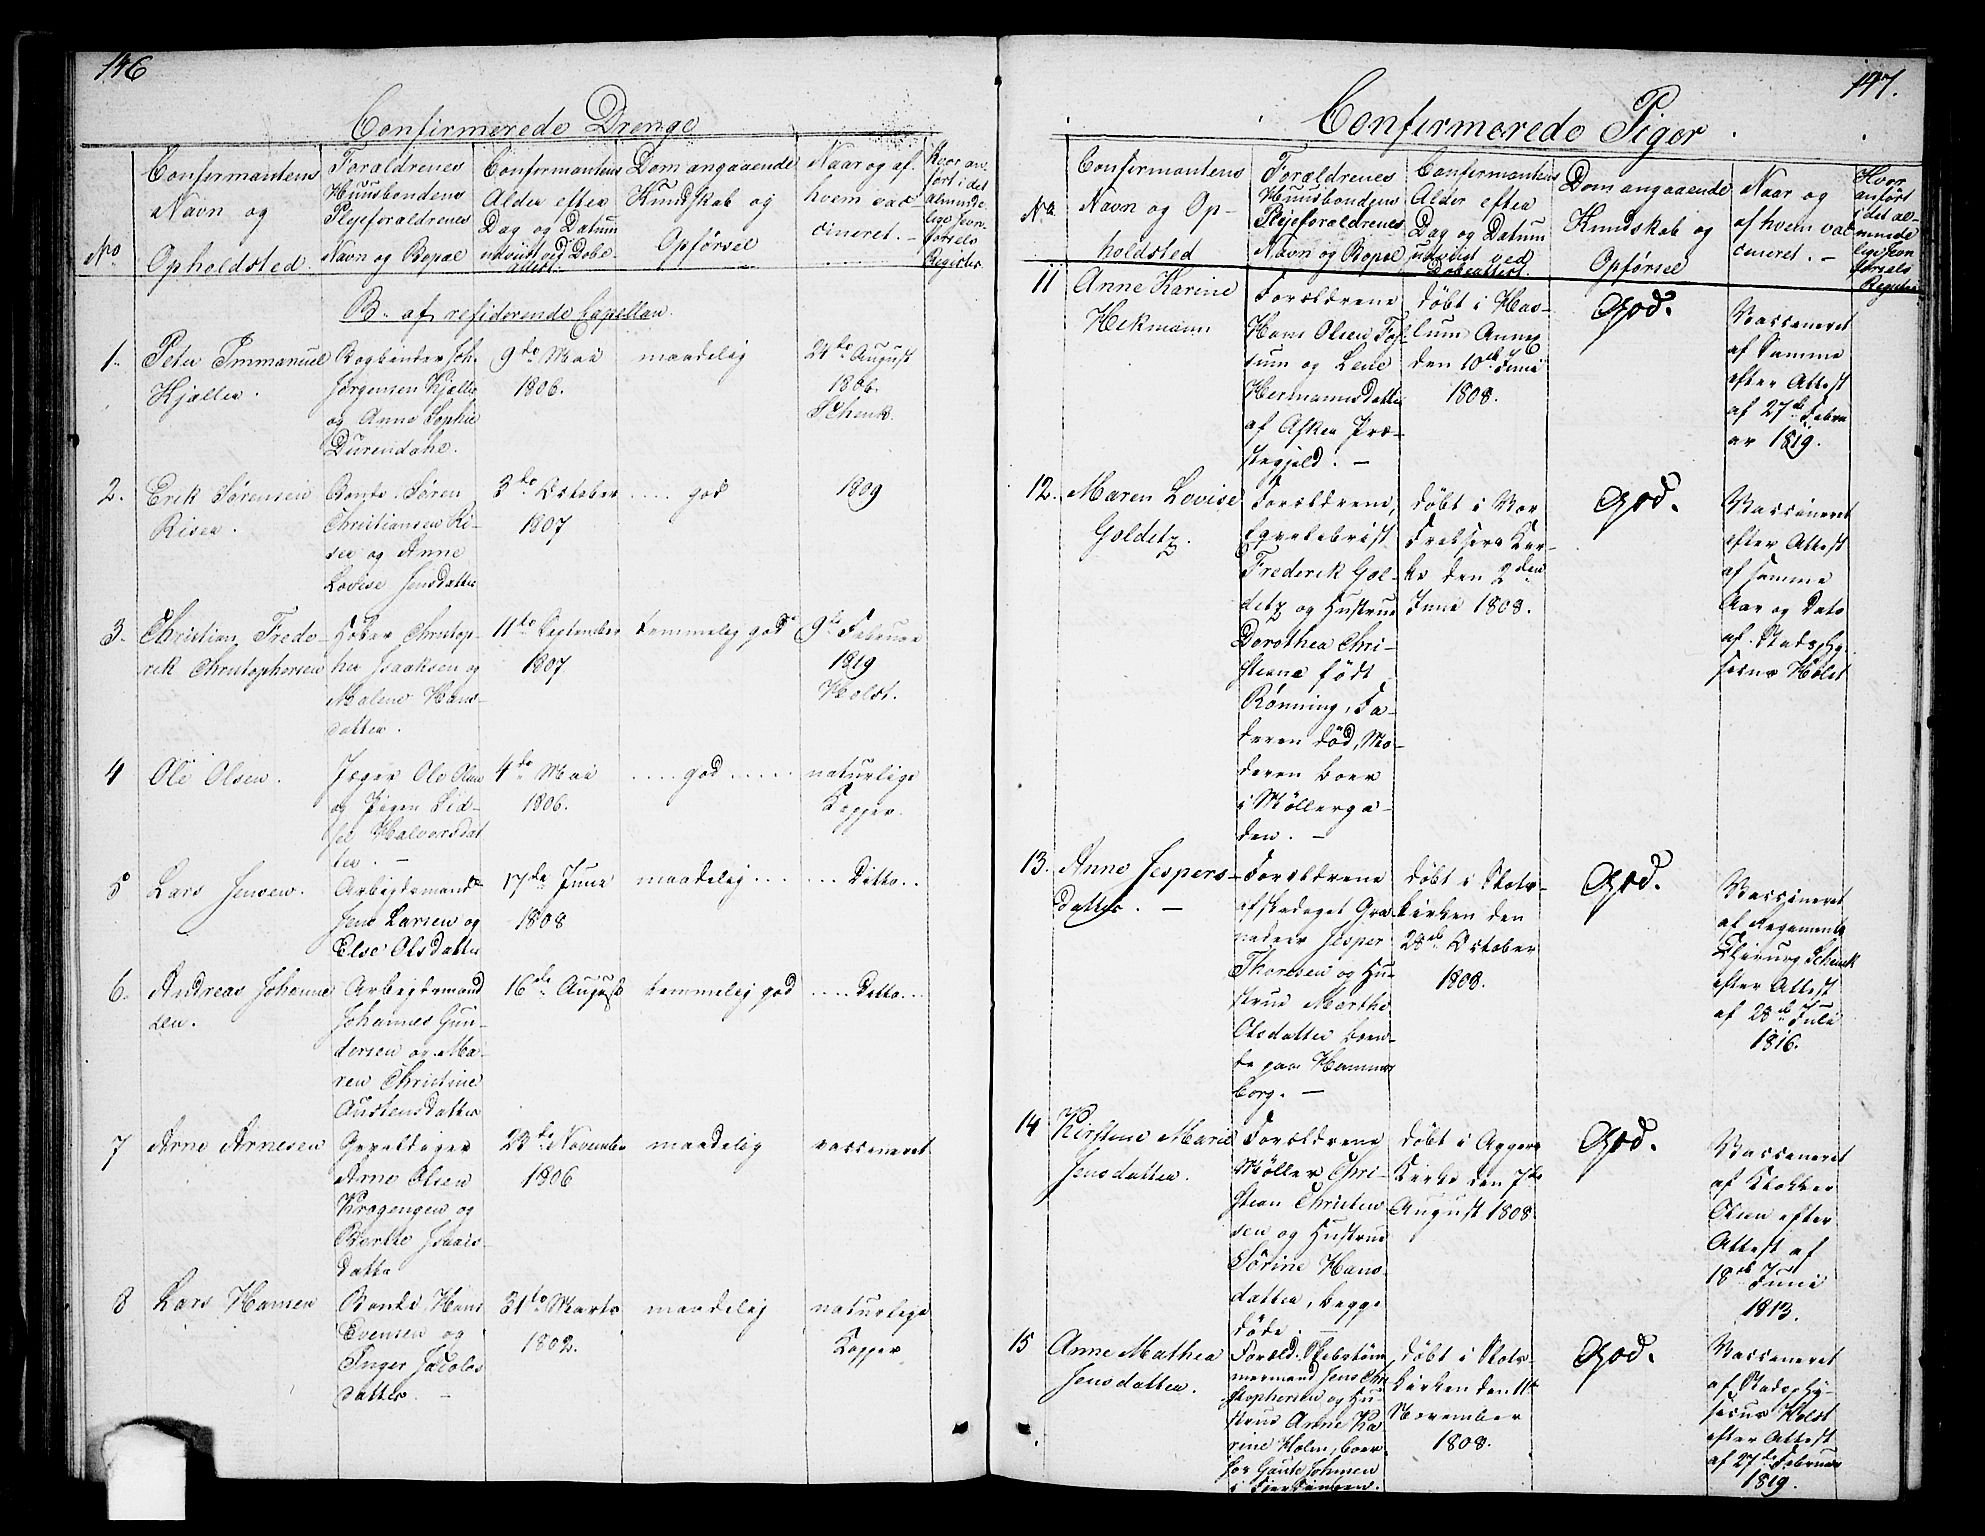 146
Confirmerede Drenge
No
Confirmantens
Navn og
Opholdsted.
Foraldrenes
Huusbondens
Plejeforaldrenes
Navn og Bopæl
Confirmantens
Alder efter
Dag og Datum
udviist ved Døbe-
attest.
Dom angaaende
Kundskab og
Opførsel
Naar og af
hvem vac-
cineret. -
Hvor an-
ført i det
alminde-
lige Jevn-
førsels
Register
B. af residerende Capellan.
1.
Peter Immanuel
Hjelter.
Bogbinder Joh.
Jørgensen
og Anne Sophie
9de Mai
1806.
maadelig
24de August
1806.
Schenk.
2.
Erik Sørensen
Riser.
Bonde Søren
Christiansen Ri-
ser og Anne
Lovise Jensdatter
3de October
1807
..... god
1809
3.
Christian Frede-
rik Christophersen
Christop-
her Isaaksen og
Malene Hans-
datter.
11te September
1807
temmelig god
9de Februar
1819
Holst.
4
Ole Olsen.
Jæger Ole Olsen
og Pigen Sid-
sel Halvorsdat
ter. -
4de Mai
1806.
.... god ......
naturlige
Kopper.
5
Lars Jensen.
Arbejdsmand
Jens Larsen og
Else Olsdatter
17de Juni
1808
maadelig ....
... Ditto ..
6.
Andreas Johanne
sen.
Arbejdsmand
Johannes Gun-
dersen og Ma-
ren Christine
Austensdatter
16de August
temmelig god
.... Ditto ...
7
Arne Arnesen
Arne Olsen
Krogengen og
Berthe Isaacs-
datter
23de November
1806
maadelig
vaccineret
8
Lars Hansen
Bonde Hans
Evensen og
Inger Jacobs
datter. -
31te Marts
1802.
maadelig
naturlige
Kopper
147.
Confirmerede Piger
No
Confirmantens
Navn og Op-
holdsted
Forældrenes
Huusbondens
Plejeforældrenes
Navn og Bopel
Confirmantens
Alder efter
Dag og Datum
udviist ved
Døbeattest.
Dom angaaende
Kundskab og
Opførsel
Naar og
af hvem vac
cineret. -
Hvor
anført
i det al-
minde
lige Jevn
førsels
Register
11
Anne Karine
Hekmann
Forældrene
Hans Olsen Fos-
sum og Lene
Hermannsdatter
af Asker Præ-
stegjeld. -
døbt i Has-
lum Annex
den 10de Juni
1808.
God.
Vaccineret
af Samme
efter Attest
af 27de Febru
ar 1819.
12.
Maren Lovise
Golditz.
Forældrene,
Frederik Gol-
ditz og Hustrue
Dorothea Chri-
stiane født
Rønning, Fa-
deren død, Mo-
deren boer
i Møllerga-
den. -
døbt i Vor
Frelsers Kir-
ke den 2den
Juni 1808.
God.
Vaccineret
efter Attest
af samme
Aar og Dato
af Stadsphy-
sicus Holst
13.
Anne Jespers-
datter. -
Forældrene
afskediget Gre
nadeer Jesper
Thoresen og Hu-
strue Marthe
Olsdatter boen-
de paa Hammers
borg. -
døbt i Slots-
kirken den
28de October
1808.
God.
Vaccineret
af Regiments
Chirurg Schenk
efter Attest
af 28de Juli
1816.
14
Kirstine Marie
Jensdatter.
Forældrene
Møller Chri-
stian Christen
sen og Hustrue
Sørine Hans-
datter, begge
døde. -
døbt i Aggers
Kirke den 7de
August 1808.
God.
Vaccineret
af Klokker
Olsen efter
Attest af
18de Juni
1813.
15
Anne Mathea
Jensdatter.
Foræld. Skibstøm
mermand Jens Chri
stophersen og Hu
strue Anne Ka
rine Holm, boer
hos Gaute Johnsen
i Fierdingen.
døbt i Slots-
kirken den 11te
November
1808.
God.
Vaccineret
af Stadsphy-
sicus Holst
efter Attest
af 27de Februar
1819.